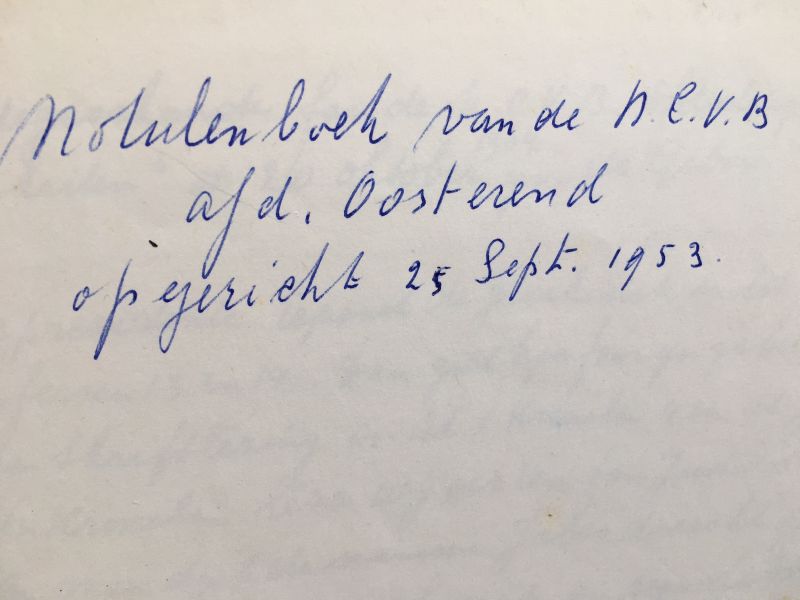 Notulenboek van de N.C.V.B
afd. Oosterend
opgericht 25 Sept. 1953.